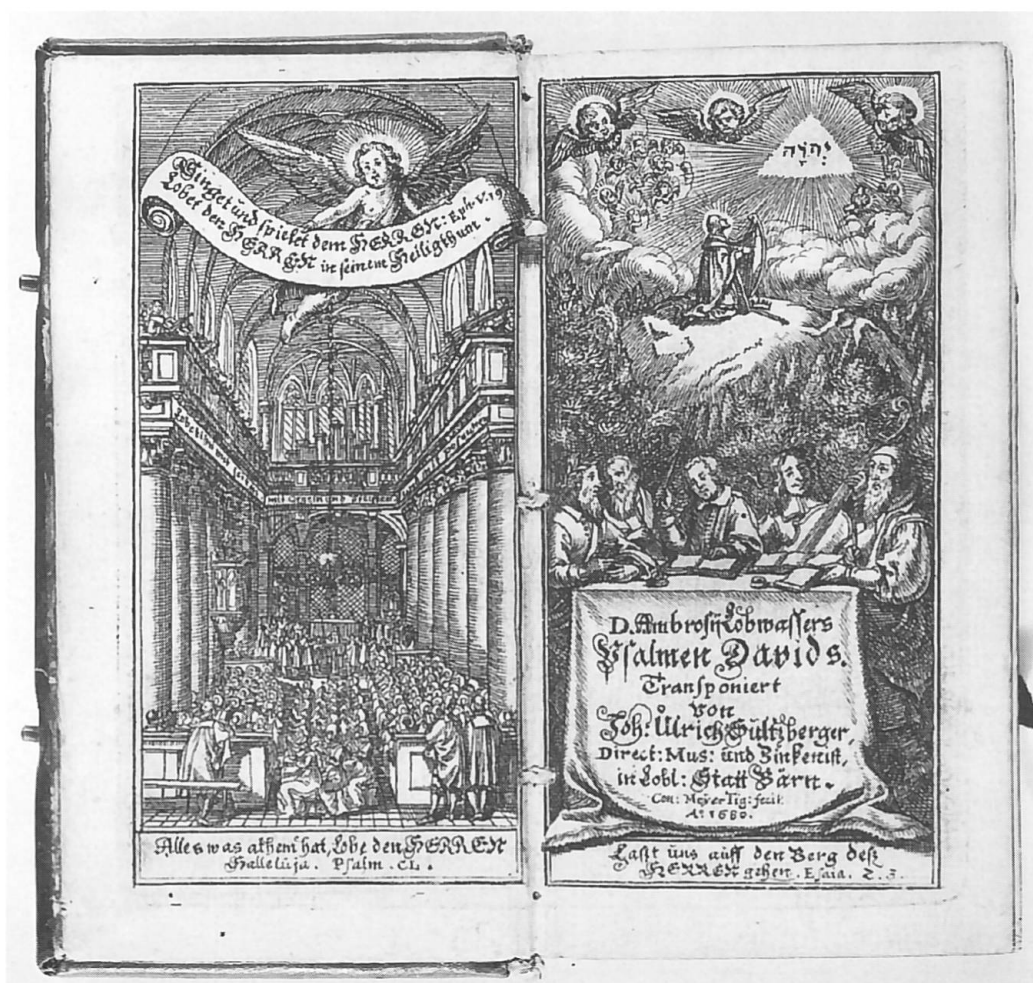 Singet und spielet dem HERREN: Eph. V. 19
Lobet den HERREN in seinem Heiligthum.
Lobet ihn mit
mit Orgeln und
mit
Alles was athem hat, Lobe den HERREN
Halleluja. Psalm. CL.
יְהוָֹה
D. Ambrosij Lobwassers
Psalmen Davids.
Transponiert
von
Joh: Ulrich Sultzberger,
Direct: Mus: und Zinkenist,
in Lobl: Statt Bärn.
Con: Meyer Tig: fecit.
Aº 1680.
Laßt uns auff den Berg deß
HERREN gehen. Esaia. 2. 3.